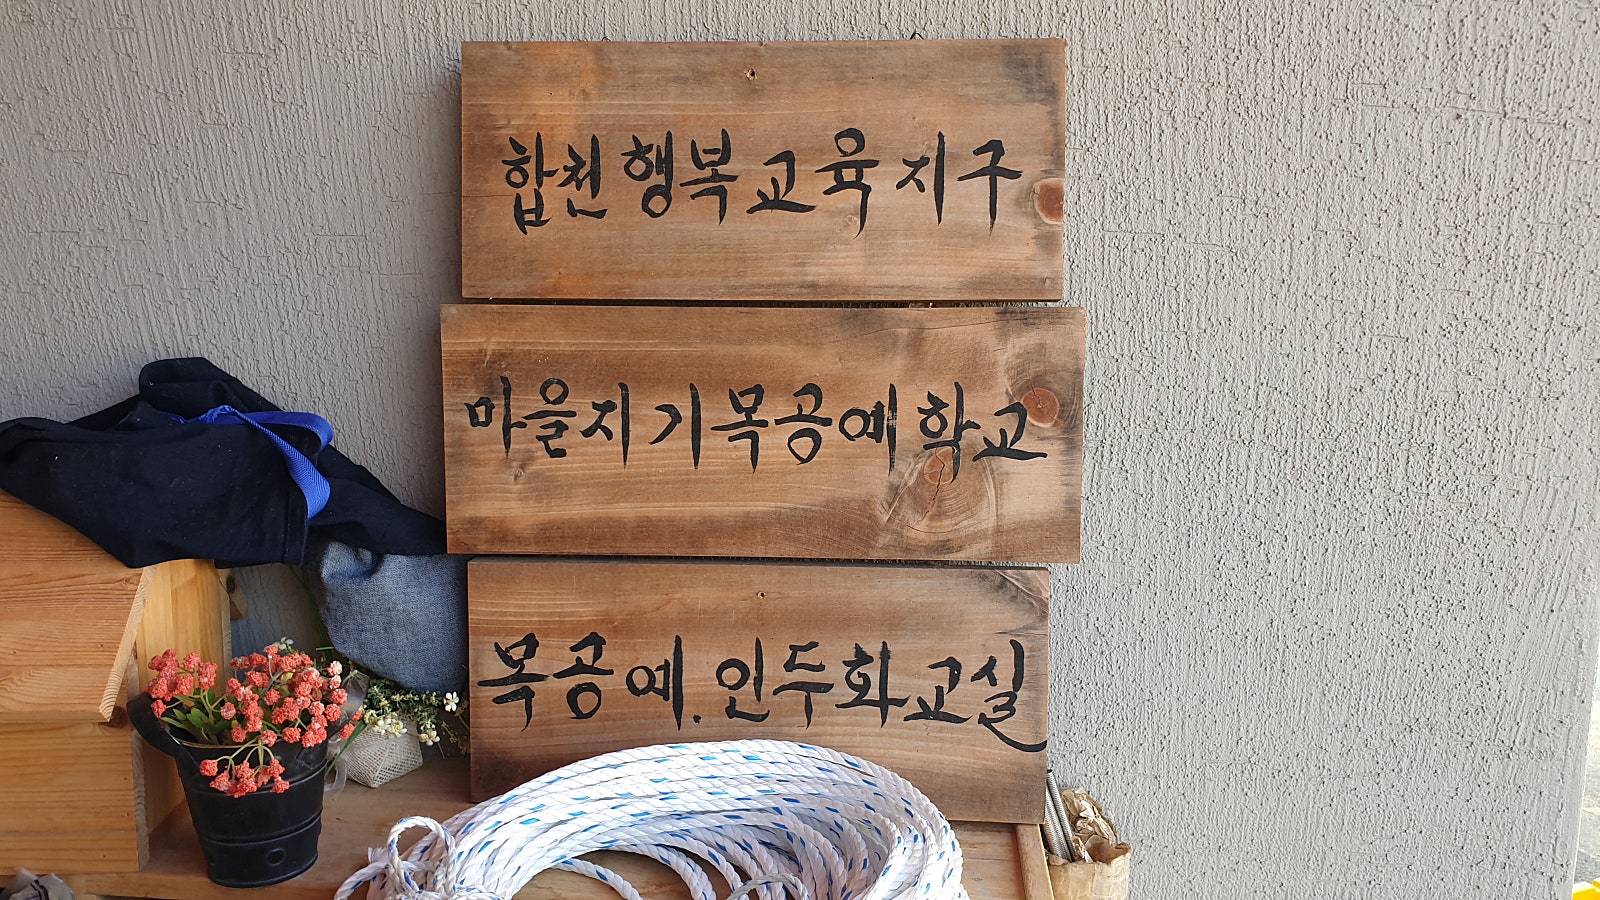 합천행복교육지구
마을지기목공예학교
목공예.인두화교실